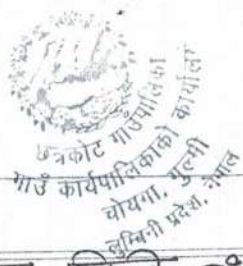 छत्रकोट गाउँपालिका
गाउँ कार्यपालिकाको कार्यालय
चोयगा, गुल्मी
लुम्बिनी प्रदेश, नेपाल